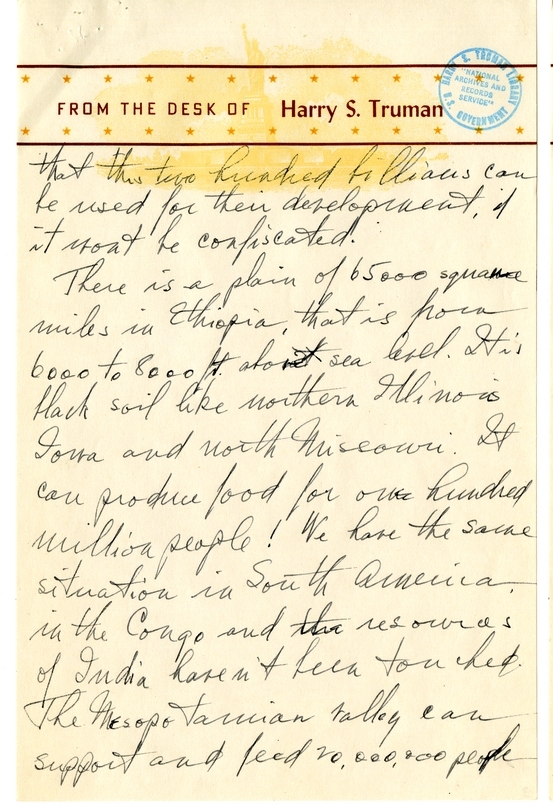 FROM THE DESK OF Harry S. Truman
HARRY S. TRUMAN LIBRARY
"NATIONAL
ARCHIVES AND
RECORDS
SERVICE"
U.S. GOVERNMENT
that this two hundred billions can
be used for their development, if
it wont be confiscated.
There is a plain of 65000 square
miles in Ethiopia, that is from
6000 to 8000 ft. above sea level. It is
black soil like northern Illinois
Iowa and north Missouri. It
can produce food for one hundred
million people! We have the same
situation in South America,
in the Congo and the resources
of India haven't been touched.
The Mesopotamian valley can
support and feed 20,000,000 people